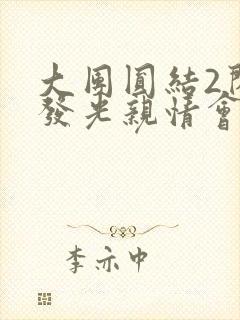 大團圓結2
發光親情會
李亦中